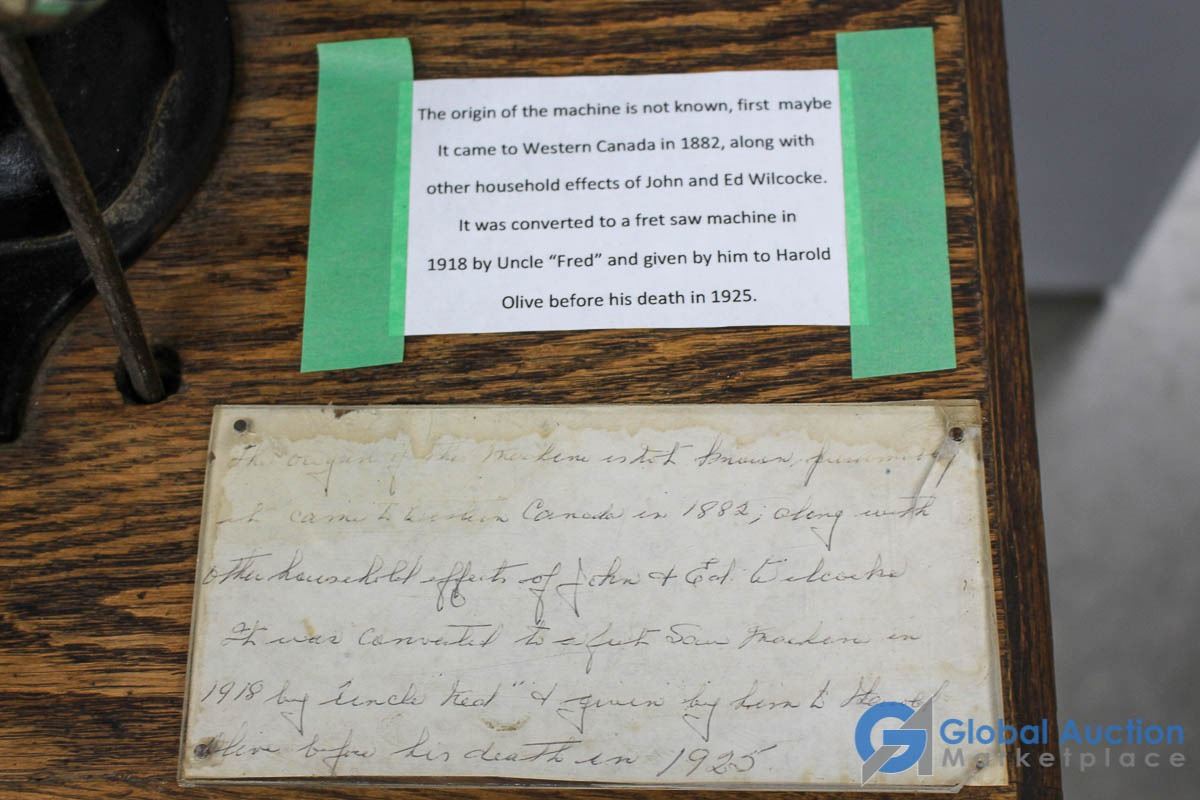 The origin of the machine is not known, first maybe
It came to Western Canada in 1882, along with
other household effects of John and Ed Wilcocke.
It was converted to a fret saw machine in
1918 by Uncle “Fred” and given by him to Harold
Olive before his death in 1925.
The origin of the machine is not known, presumably
it came to Western Canada in 1882, along with
other household effects of John & Ed. Wilcocke
It was converted to a fret Saw Machine in
1918 by Uncle "Fred" & given by him to Harold
Olive before his death in 1925.
Global Auction
Marketplace